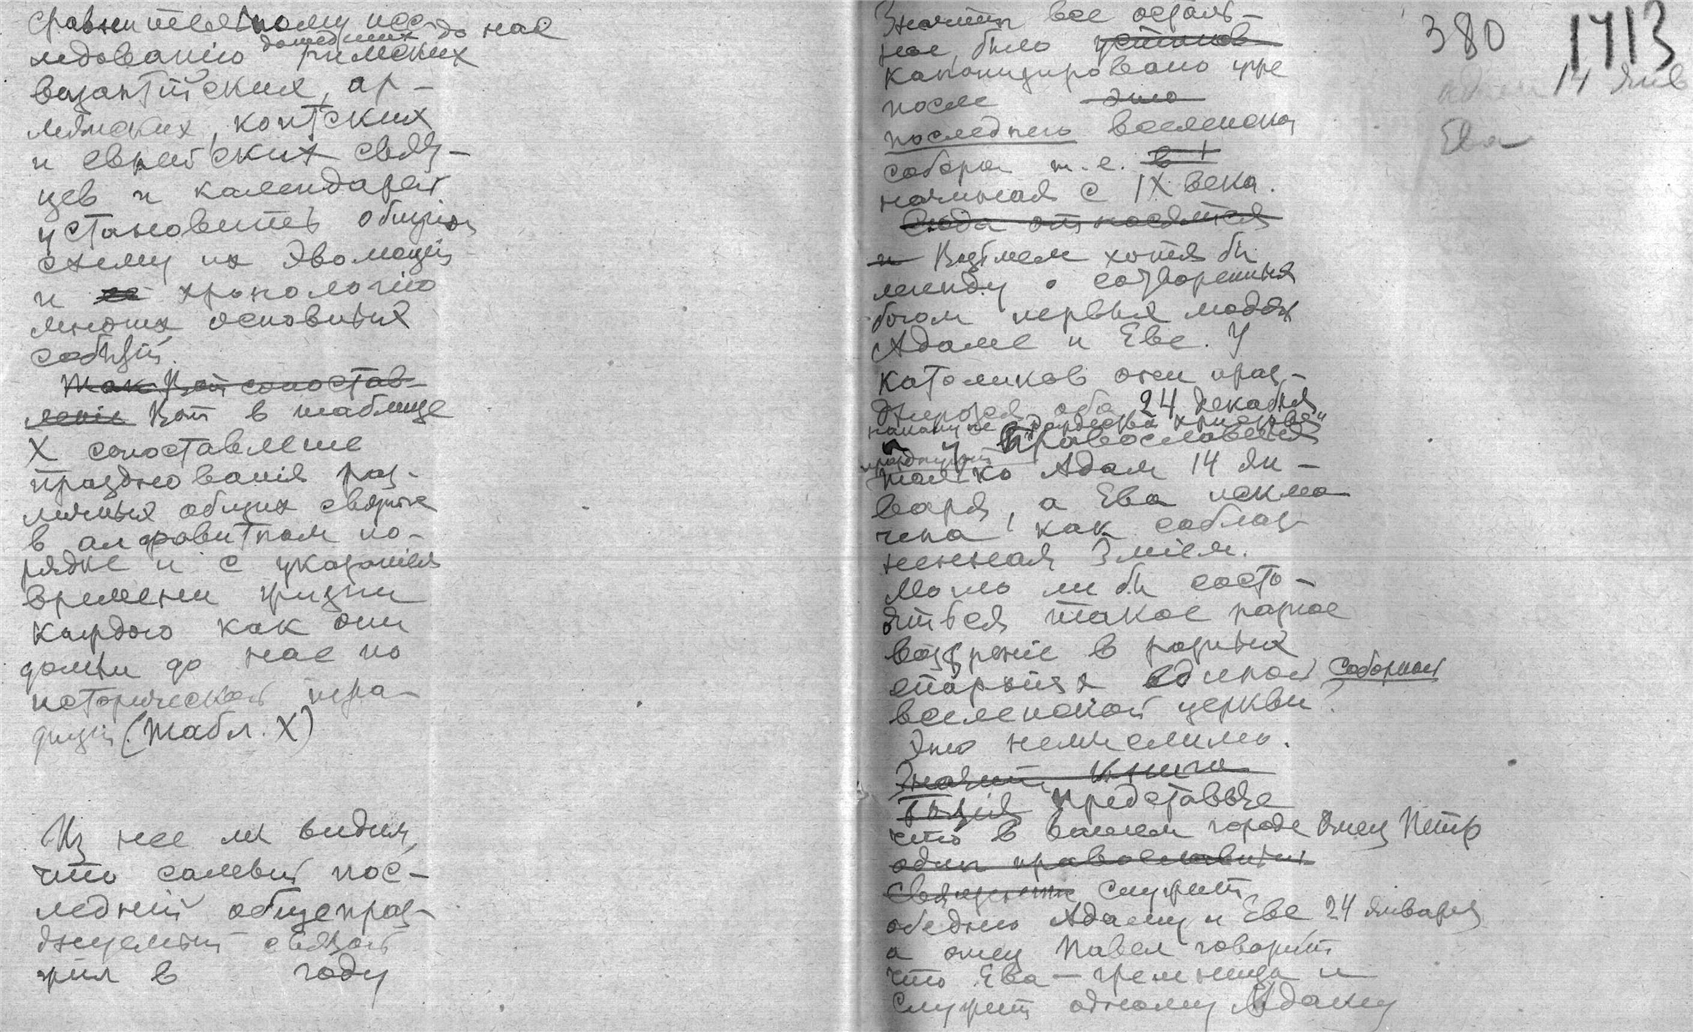 сравнительному исс-
ледованію дошедших до нас римских
византійских, ар-
мянских, коптских
и еврейских свят-
цев и календарей
установить общую
схему их эволюціи
и ея хронологію
многих основных
событій.
Так Вот сопостав-
леніе Вот в таблице
X сопоставленіе
празднованія раз-
личных общих святых
в алфавитном по-
рядке и с указаніем
времени жизни
каждого как они
дошли до нас по
исторической тра-
диціи (Табл. X)
Из нее мы видим,
что самый пос-
ледній общепраз-
днуемый святой
жил в году
380 1713
Адам 14 янв
Ева
Значит все осталь-
ное было установ
канонизировано уже
после это
последнего вселенск
собора т. е. в
начиная с IX века.
Сюда относятся
и Возьмем хотя бы
легенду о сотворенных
богом первых людях
Адаме и Еве. У
католиков они праз-
днуются оба 24 декабря
накануне "Рождества Христова"
а у Православных
празднуется
только Адам 14 ян-
варя, а Ева исклю-
чена как соблаз-
ненная Зміем.
Могло ли бы состо-
яться такое разно
воззреніе в разных
епархіях единой соборной
вселенской церкви?
Это немыслимо.
Значит Книга
Бытія Представьте
что в вашем городе отец Петр
один православный
священник служит
обедню Адаму и Еве 24 января
а отец Павел говорит
что Ева — грешница и
служит одному Адаму